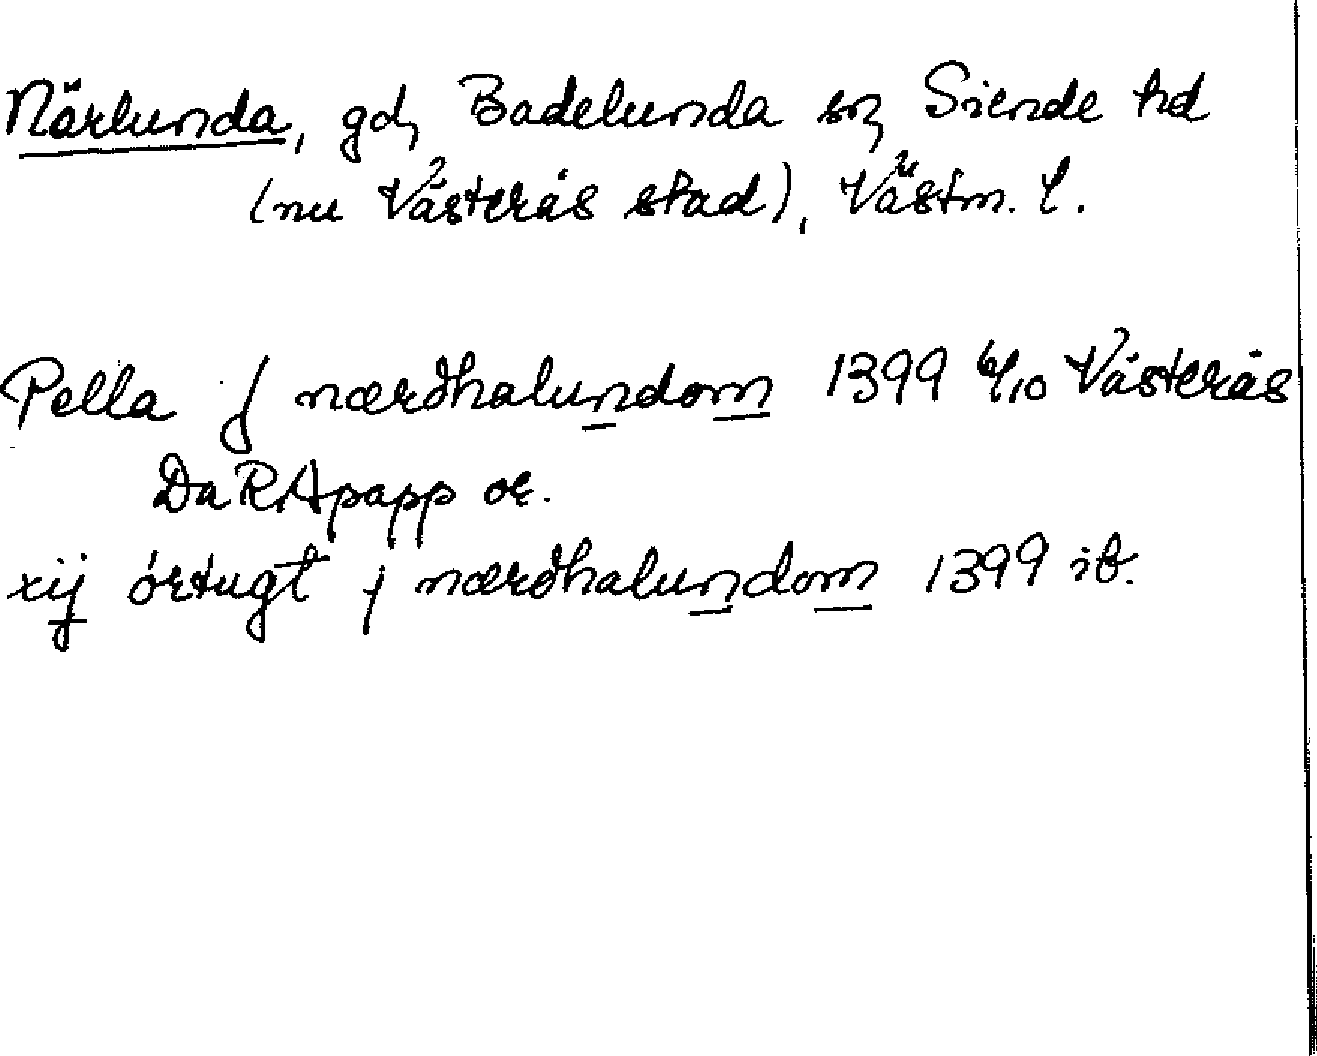 Närlunda, gd, Badelunda sn, Siende hd
(nu Västerås stad), Västm. l.
Pella j nærdhalundom 1399 6/10 Västerås
DaRApapp or.
xij örtugt j nærdhalundom 1399 ib.